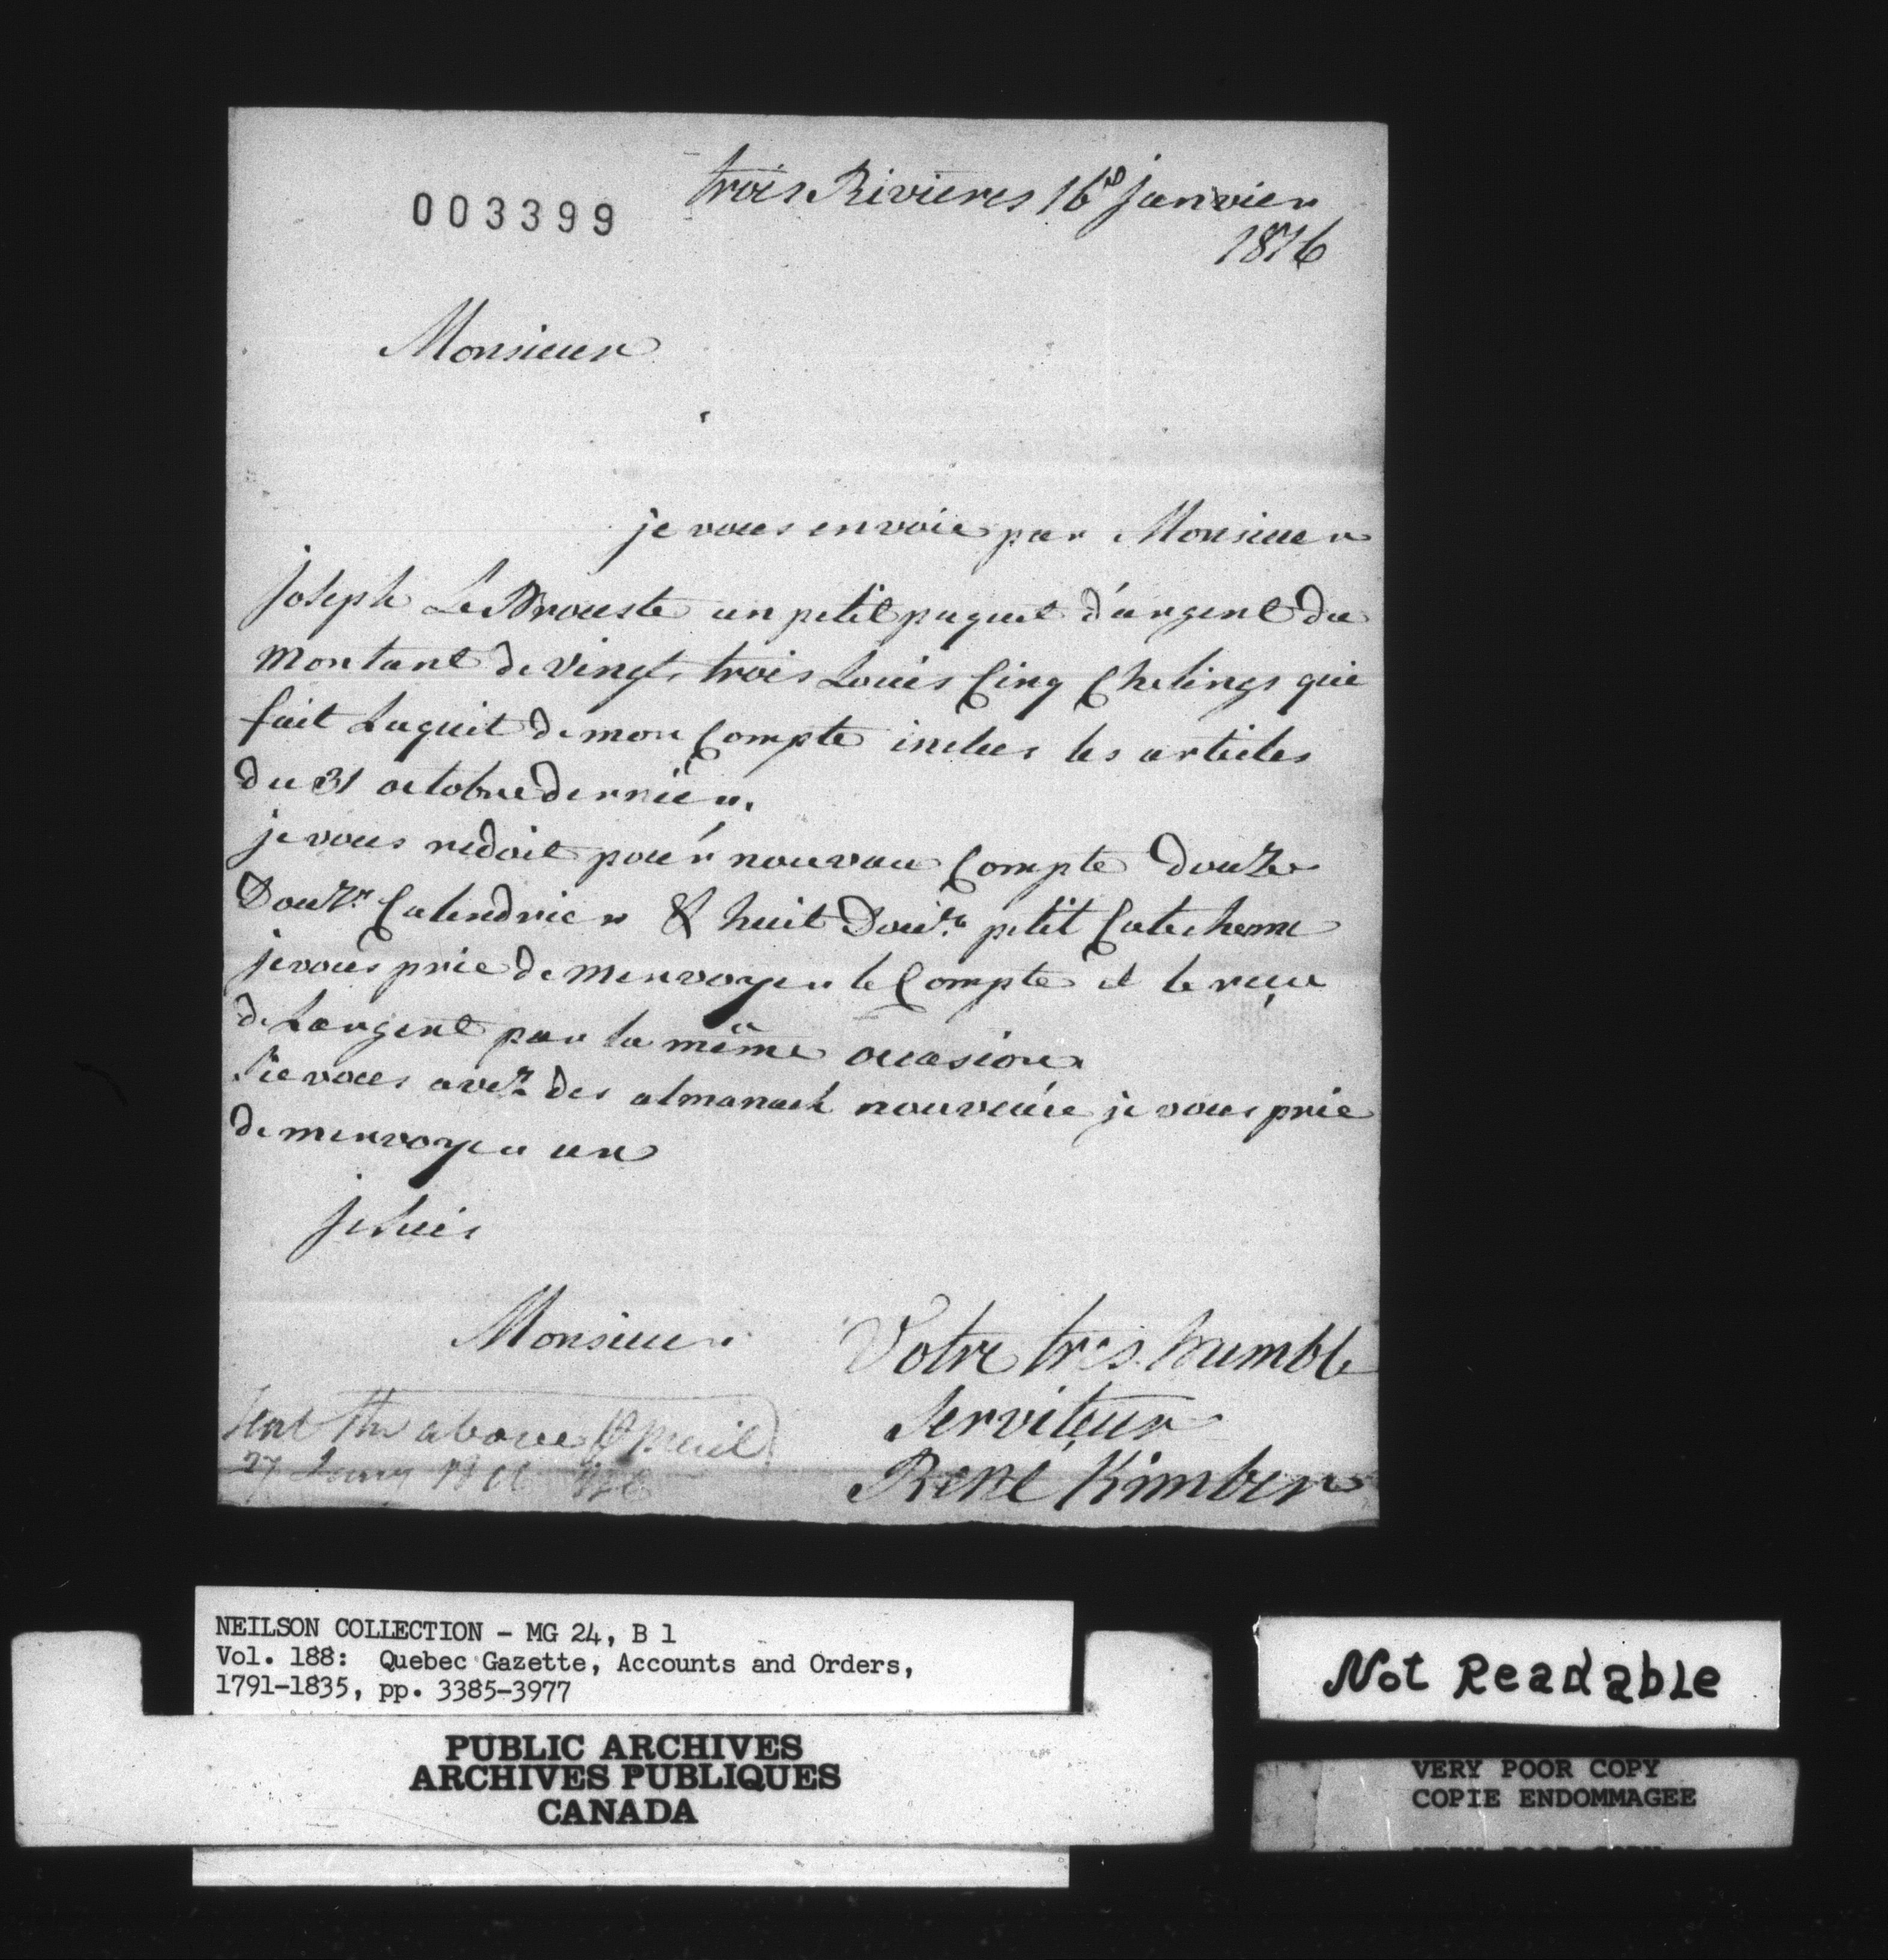 003399
trois Rivieres 16e janvier
1816
Monsieur
je vous envoie par Monsieur
joseph LeProuste un petit paquet d'argent du
montant de vingt trois Louis Cinq Chelings qui
fait Laquit de mon Compte inclus les articles
du 31 octobre dernier.
je vous redoit pour nouvau Compte douze
Douzn Calendrier & huit Douzn petit Catecheme
je vous prie de menvoyer le Compte et le reçu
de Largent par la même occasion
Sie vous avez des almanach nouveaue je vous prie
de menvoyer un
je Suis
Monsieur
Votre tres humble
Serviteur
René Kimber
Sent the above
27 Jany
NEILSON COLLECTION - MG 24, B 1
Vol. 188: Quebec Gazette, Accounts and Orders,
1791-1835, pp. 3385-3977
PUBLIC ARCHIVES
ARCHIVES PUBLIQUES
CANADA
Not Readable
VERY POOR COPY
COPIE ENDOMMAGEE